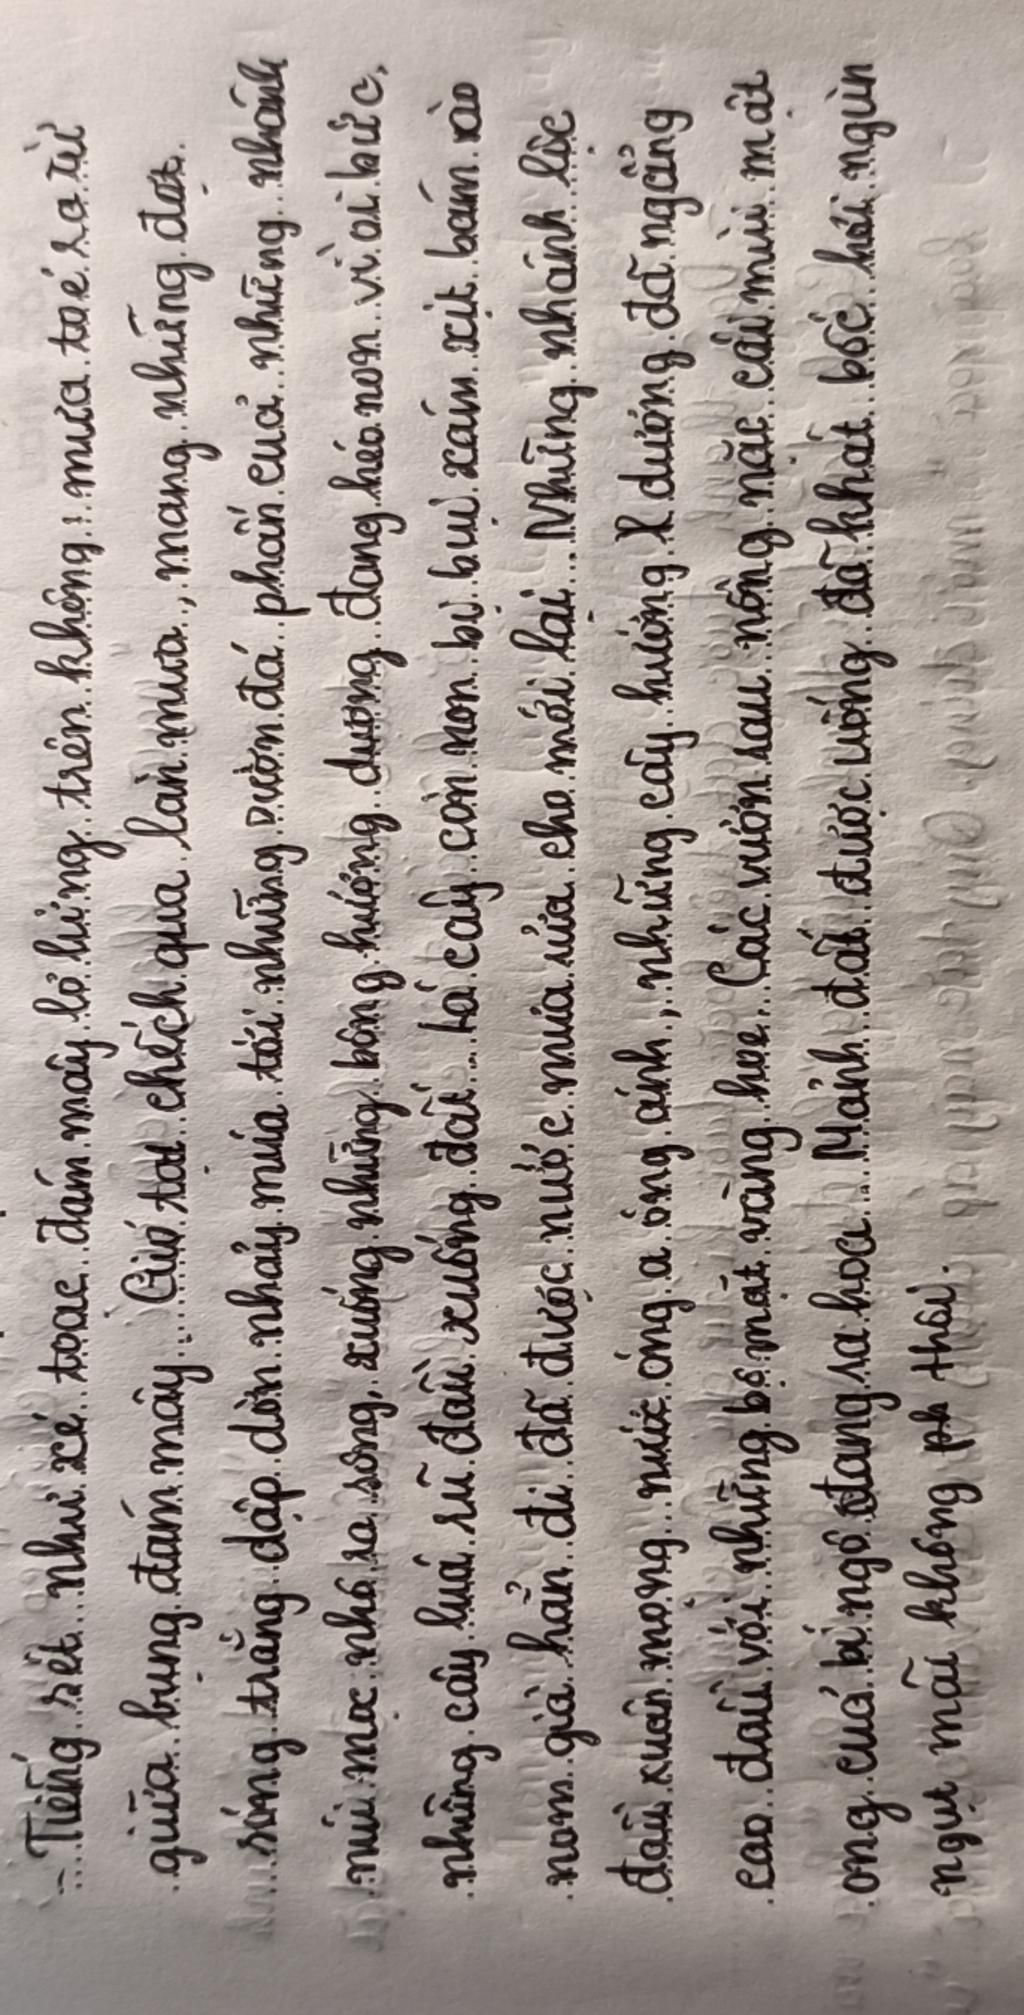 - Tiếng sét như xé toạc đám mây lơ lửng trên không: mưa toé ra từ
giữa bụng đám mây. Gió tạt chếch qua làn mưa, mang những đợt
sóng trắng dập dờn nhảy múa tới những vườn đá phấn của những nhánh
núi mọc nhô ra sông, xuống những bông hướng dương đang héo non vì oi bức,
những cây luá rũ đầu xuống đất. Lá cây còn non bị bụi xám xịt bám vào
nom già hẳn đi đã được nước mưa rửa cho mới lại. Những nhánh lộc
đầu xuân mọng nước óng a óng ánh, những cây hướng X dương đã ngẩng
cao đầu với những bộ mặt vàng hoe. Các vườn rau nồng nặc cái mùi mật
ong cuả bí ngô đang ra hoa. Mảnh đất được uống đã khát bốc hơi ngùn
ngụt mãi không ph thôi.